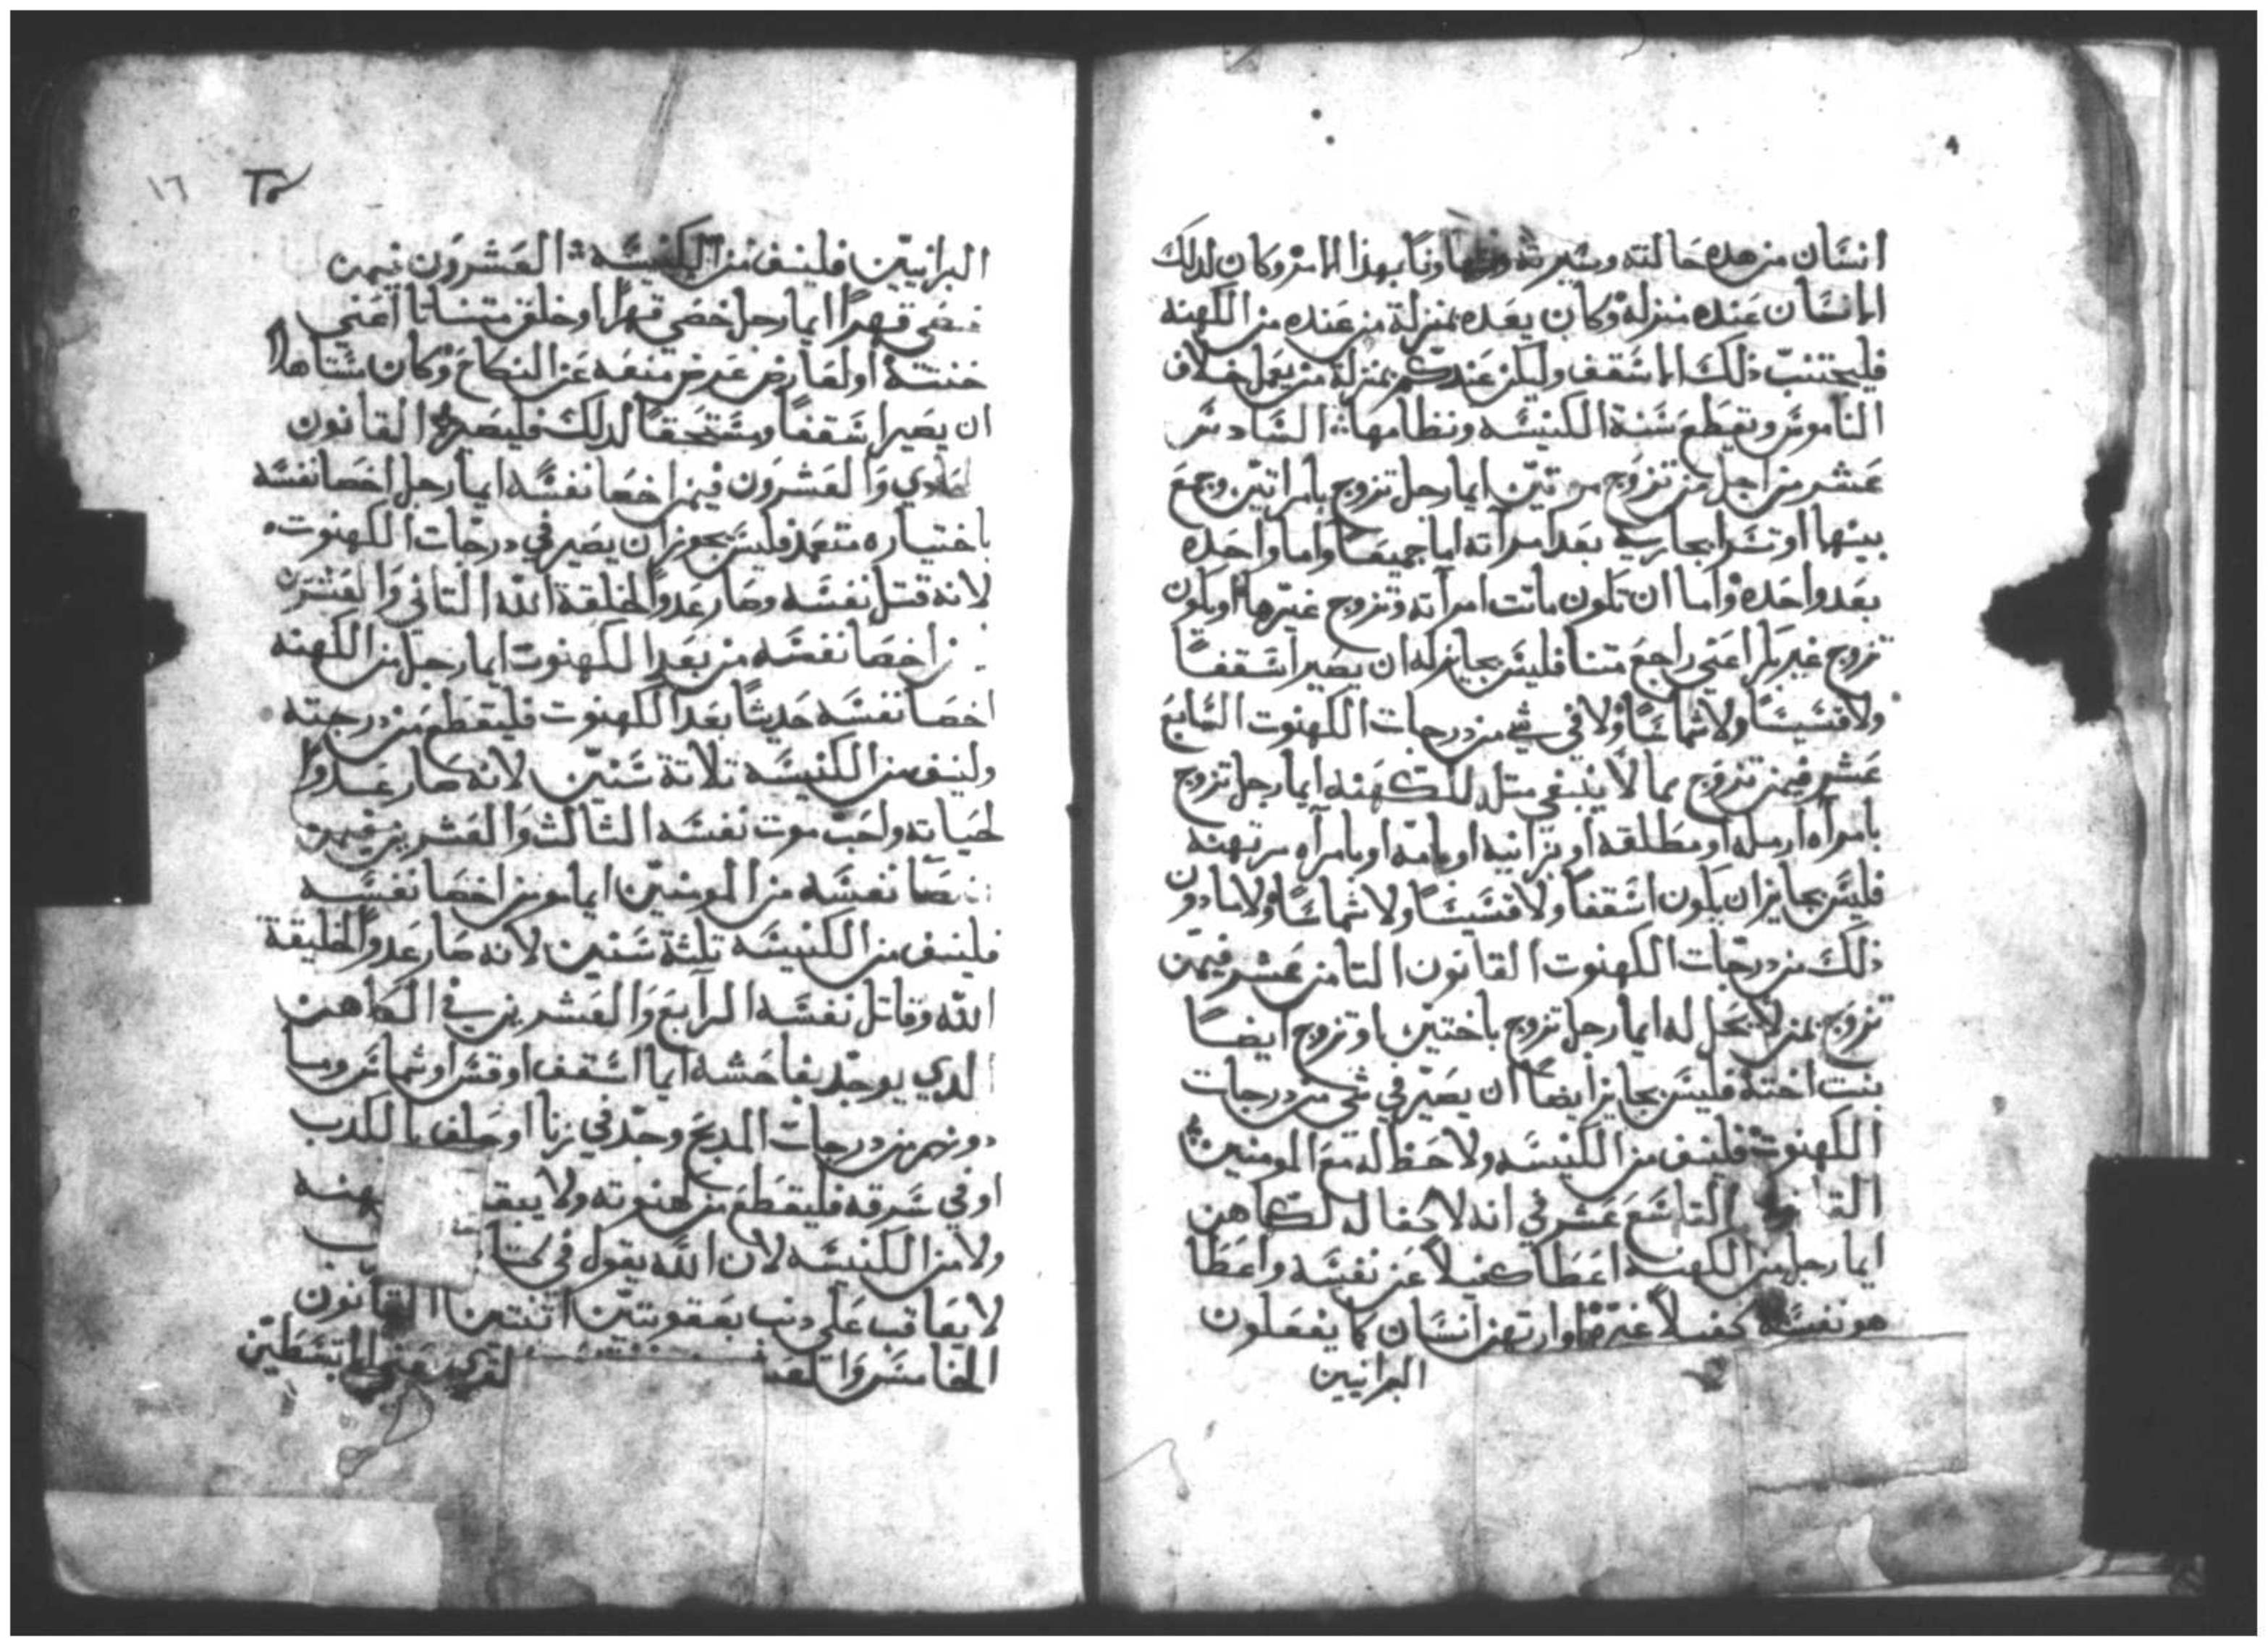 انسان من هده حالته وسيرته وتهاونا بهذا الامر وكان لدلك
الانسان عنده منزله وكان يعده بمنزلة من عنده من الكهنه
فليجتنب ذلك الاسقف وليكن عندكم بمنزلة من يعمل خلاف
الناموس ويقطع سنة الكنيسه ونظامها السادس
عشر من اجل من تزوج مرتين ايما رجل تزوج بامراتين وجمع
بينهما او تسرا بجاريه بعد امراته اما جميعا واما واحده
بعد واحده واما ان تكون ماتت امراته وتزوج غيرها او يكون
تزوج غير بكرا اعني راجع متنا فليس بجايز له ان يصير اسقفا
ولا قسيسا ولا شماسا ولا في شي من درجات الكهنوت السابع
عشر فيمن تزوج مما لا ينبغي متله للكهنه ايما رجل تزوج
بامراه ارمله او مطلقه او بزانيه او بامه او بامراه مرتهنه
فليس بجايز ان يكون اسقفا ولا قسيسا ولا شماسا ولا ما دون
ذلك من درجات الكهنوت القانون التامن عشر فيمن
تزوج بمن لا يحل له ايما رجل تزوج باختين او تزوج ايضا
بنت اخته فليس بجايز ايضا ان يصير في شي من درجات
الكهنوت فلينف من الكنيسه ولا حظ له مع المومنين
القانون التاسع عشر في انه لا كفاله لكاهن
ايما رجل من الكهنه اعطا كفيلا عن نفسه واعطا
هو نفسه كفيلا غيره او ارتهن انسان كما يفعلون
البرانيين
١٦
البرانيين فلينف من الكنيسه العشرون فيمن
خصي قهرا ايما رجل خصي قهرا او خلق متناتا اعني
خنته او لعارض عرض منعه عن النكاح وكان مستاهلا
ان يصير اسقفا ومستحقا لدلك فليصير القانون
الحادي والعشرون فيمن اخصا نفسه ايما رجل اخصا نفسه
باختياره متعمد فليس يجوز ان يصير في درجات الكهنوت
لانه قتل نفسه وصار عدوا لخلقة الله التاني والعشرين
من اخصا نفسه من بعد الكهنوت ايما رجل من الكهنه
اخصا نفسه حديثا بعد الكهنوت فليقطع من درجته
ولينف من الكنيسه تلاتة سنين لانه صار عدوا
لحياته واحب موت نفسه الثالث والعشرين فيمن
خصا نفسه من المومنين ايما مومن اخصا نفسه
فلينف من الكنيسه تلثة سنين لانه صار عدوا لخليقة
الله وقاتل نفسه الرابع والعشرين في الكاهن
الدي يوجد بفاحشه ايما اسقف او قس او شماس وما
دونهم من درجات المدبح وجد في زنا او حلف بالكدب
او في سرقه فليقطع من كهنوته ولا يبقا
ولا من الكنيسه لان الله يقول في
لا يعاقب على دنب بعقوبتين اثنتين القانون
الخامس و